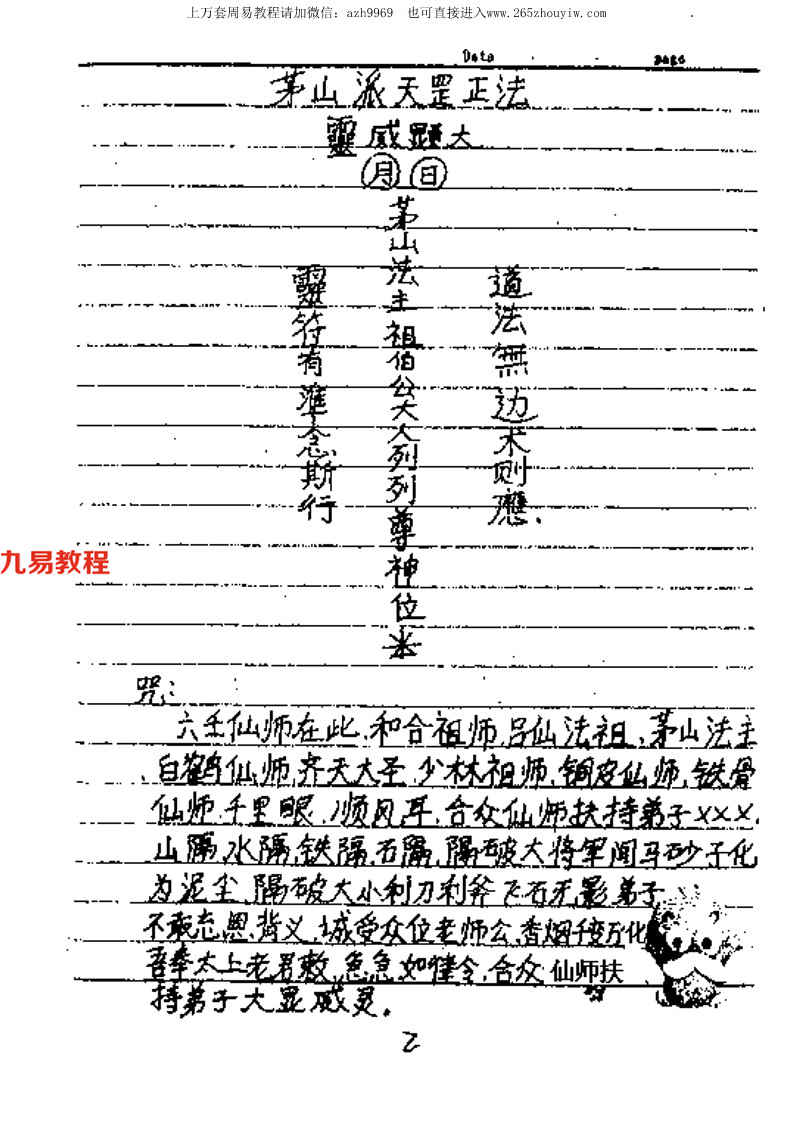 上万套周易教程请加微信：azh9969 也可直接进入www.265zhouyiw.com
Date
page
茅山派天罡正法
靈威顯大
月 日
道法無边术则應.
茅山法主祖伯公大人列列尊神位
靈符有準念斯行
九易教程
咒：
六壬仙师在此,和合祖师,吕仙法祖,茅山法主
白鹤仙师,齐天大圣,少林祖师,铜皮仙师,铁骨
仙师,千里眼,顺风耳,合众仙师扶持弟子×××.
山隔,水隔,铁隔,石隔,隔破大将军闻马砂子化
为泥尘,隔破大小利刀利斧飞石无影弟子
不敢忘恩背义,诚受众位老师公,香烟千变万化
吾奉太上老君敕,急急如律令,合众仙师扶
持弟子大显威灵.
2